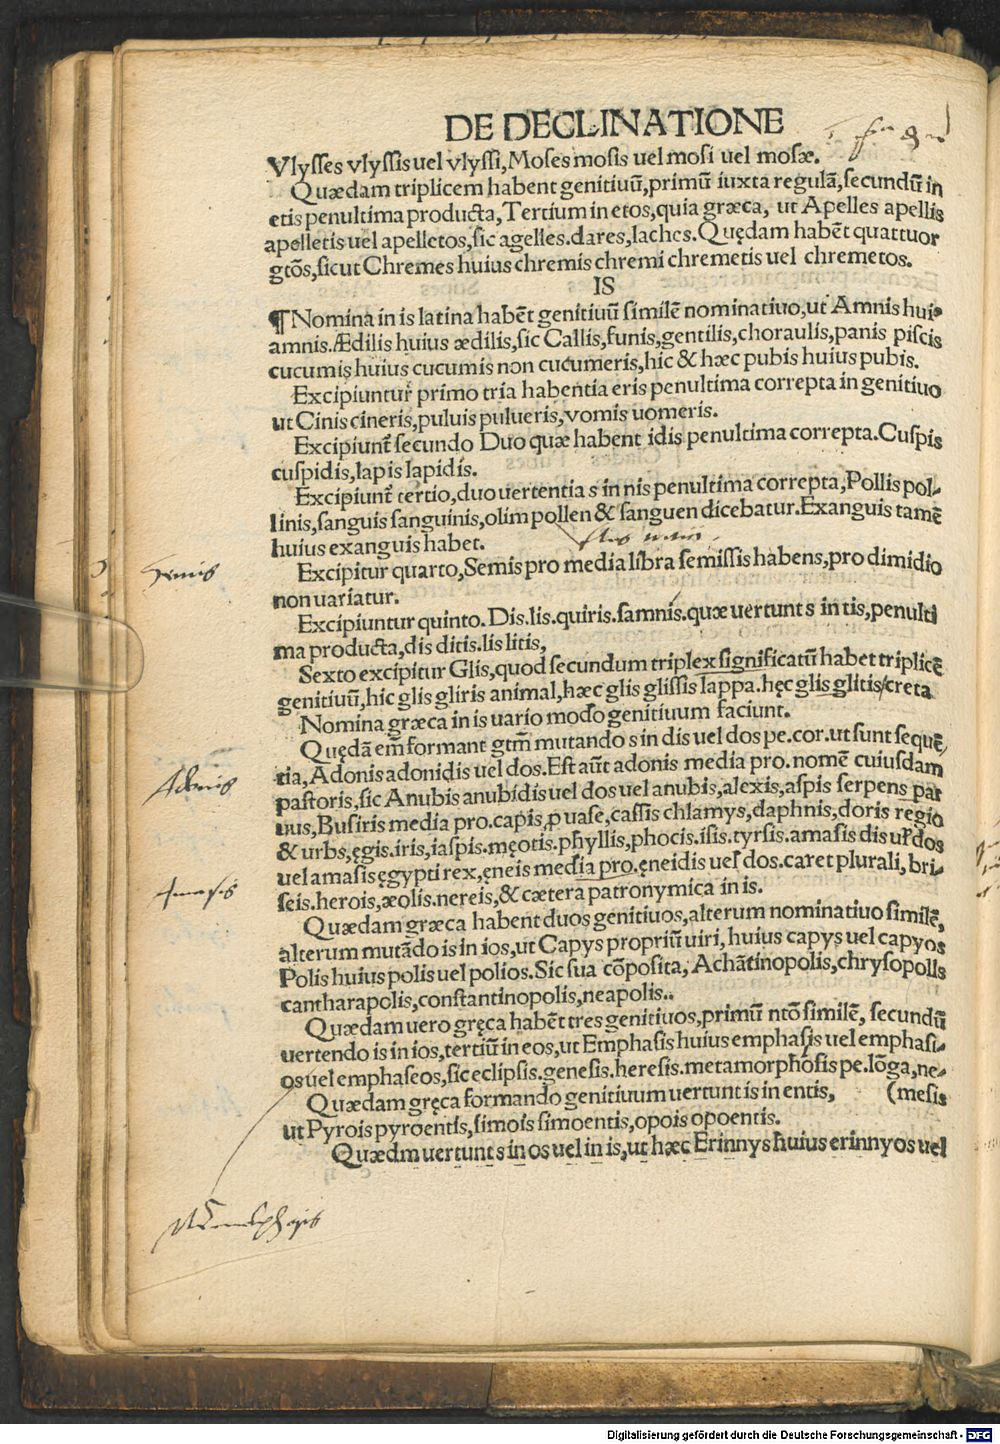 DE DECLINATIONE
Vlysses vlyssis uel vlyssi, Moses mosis uel mosi uel mosæ.
Quædam triplicem habent genitiuū, primū iuxta regulā, secundū in
etis penultima producta, Tertium in etos, quia græca, ut Apelles apellis
apelletis uel apelletos, sic agelles. dares, laches. Quędam habēt quattuor
gtōs, sicut Chremes huius chremis chremi chremetis uel chremetos.
IS
¶ Nomina in is latina habēt genitiuū similē nominatiuo, ut Amnis hui⸗
amnis. Ædilis huius ædilis, sic Callis, funis, gentilis, choraulis, panis piscis
cucumis huius cucumis non cucumeris, hic & hæc pubis huius pubis.
Excipiuntur primo tria habentia eris penultima correpta in genitiuo
ut Cinis cineris, puluis pulueris, vomis uomeris.
Excipiunt̄ secundo Duo quæ habent idis penultima correpta. Cuspis
cuspidis, lapis lapidis.
Excipiunt̄ tertio, duo uertentia s in nis penultima correpta, Pollis pol⸗
linis, sanguis sanguinis, olim pollen & sanguen dicebatur. Exanguis tamē
huius exanguis habet.
Excipitur quarto, Semis pro media libra semissis habens, pro dimidio
non uariatur.
Semis
Excipiuntur quinto. Dis. lis. quiris. samnis. quæ uertunt s in tis, penulti
ma producta, dis ditis. lis litis,
Sexto excipitur Glis, quod secundum triplex significatū habet triplicē
genitiuū, hic glis gliris animal, hæc glis glissis lappa. hęc glis glitis/creta
Nomina græca in is uario modo genitiuum faciunt.
Quędā em̄ formant gtm̄ mutando s in dis uel dos pe. cor. ut sunt sequē,
tia, Adonis adonidis uel dos. Est aūt adonis media pro. nomē cuiusdam
Adonis
pastoris, sic Anubis anubidis uel dos uel anubis, alexis, aspis serpens par
uus, Busiris media pro. capis, p uase, cassis chlamys, daphnis, doris regio
& urbs, ęgis. iris, iaspis. męotis. phyllis, phocis. isis. tyrsis. amasis dis ul̄ dos
uel amasis ęgypti rex, ęneis media pro. ęneidis uel dos. caret plurali, bri⸗
Amasis
seis. herois, æolis. nereis, & cætera patronymica in is.
Quædam græca habent duos genitiuos, alterum nominatiuo similē,
alterum mutādo is in ios, ut Capys propriū uiri, huius capys uel capyos
Polis huius polis uel polios. Sic sua cōposita, Achātinopolis, chrysopolis
cantharapolis, constantinopolis, neapolis..
Quædam uero gręca habēt tres genitiuos, primū ntō similē, secundū
uertendo is in ios, tertiū in eos, ut Emphasis huius emphasis uel emphasi⸗
os uel emphaseos, sic eclipsis. genesis. heresis. metamorphosis pe. lōga, ne⸗
Quædam gręca formando genitiuum uertunt is in entis, (mesis
ut Pyrois pyroentis, simois simoentis, opois opoentis.
Quædm uertunt s in os uel in is, ut hæc Erinnys huius erinnyos uel
Digitalisierung gefördert durch die Deutsche Forschungsgemeinschaft - DFG